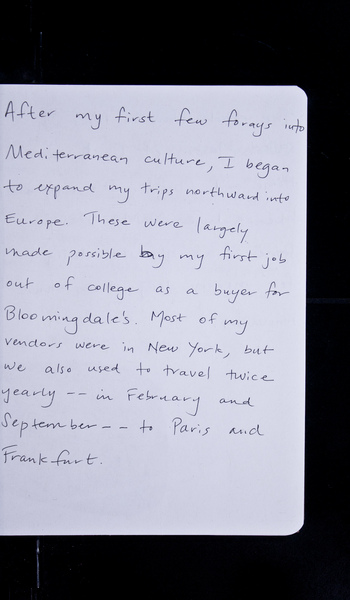 After my first few forays into
Mediterranean culture, I began
to expand my trips northward into
Europe. These were largely
made possible by my first job
out of college as a buyer for
Bloomingdale's. Most of my
vendors were in New York, but
we also used to travel twice
yearly -- in February and
September -- to Paris and
Frankfurt.